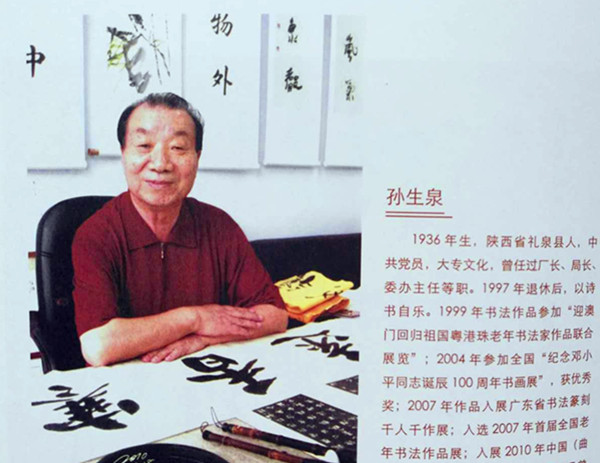 中
物
外
孙生泉
1936 年生，陕西省礼泉县人，中
共党员，大专文化，曾任过厂长、局长、
委办主任等职。1997 年退休后，以诗
书自乐。1999 年书法作品参加“迎澳
门回归祖国粤港珠老年书法家作品联合
展览”；2004 年参加全国“纪念邓小
平同志诞辰 100 周年书画展”，获优秀
奖；2007 年作品入展广东省书法篆刻
千人千作展；入选 2007 年首届全国老
年书法作品展；入展 2010 年中国（曲
2010